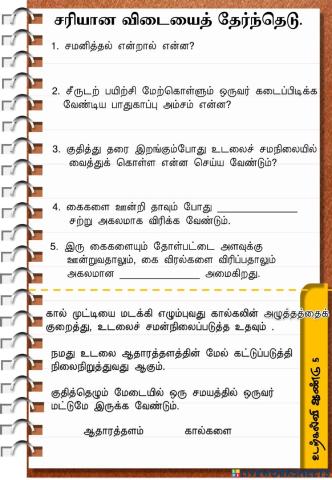 சரியான விடையைத் தேர்ந்தெடு.
1. சமனித்தல் என்றால் என்ன?
2. சீருடற் பயிற்சி மேற்கொள்ளும் ஒருவர் கடைப்பிடிக்க
வேண்டிய பாதுகாப்பு அம்சம் என்ன?
3. குதித்து தரை இறங்கும்போது உடலைச் சமநிலையில்
வைத்துக் கொள்ள என்ன செய்ய வேண்டும்?
4. கைகளை ஊன்றி தாவும் போது _______________
சற்று அகலமாக விரிக்க வேண்டும்.
5. இரு கைகளையும் தோள்பட்டை அளவுக்கு
ஊன்றுவதாலும், கை விரல்களை விரிப்பதாலும்
அகலமான _______________ அமைகிறது.
கால் முட்டியை மடக்கி எழும்புவது கால்களின் அழுத்தத்தைக்
குறைத்து, உடலைச் சமன்நிலைப்படுத்த உதவும் .
நமது உடலை ஆதாரத்தளத்தின் மேல் கட்டுப்படுத்தி
நிலைநிறுத்துவது ஆகும்.
குதித்தெழும் மேடையில் ஒரு சமயத்தில் ஒருவர்
மட்டுமே இருக்க வேண்டும்.
ஆதாரத்தளம் கால்களை
உடற்கல்வி ஆண்டு 5